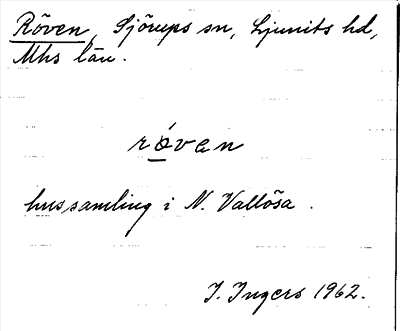 Röven, Sjörups sn, Ljunits hd,
Mhs län.
róven
hussamling i N. Vallösa.
I. Ingers 1962.